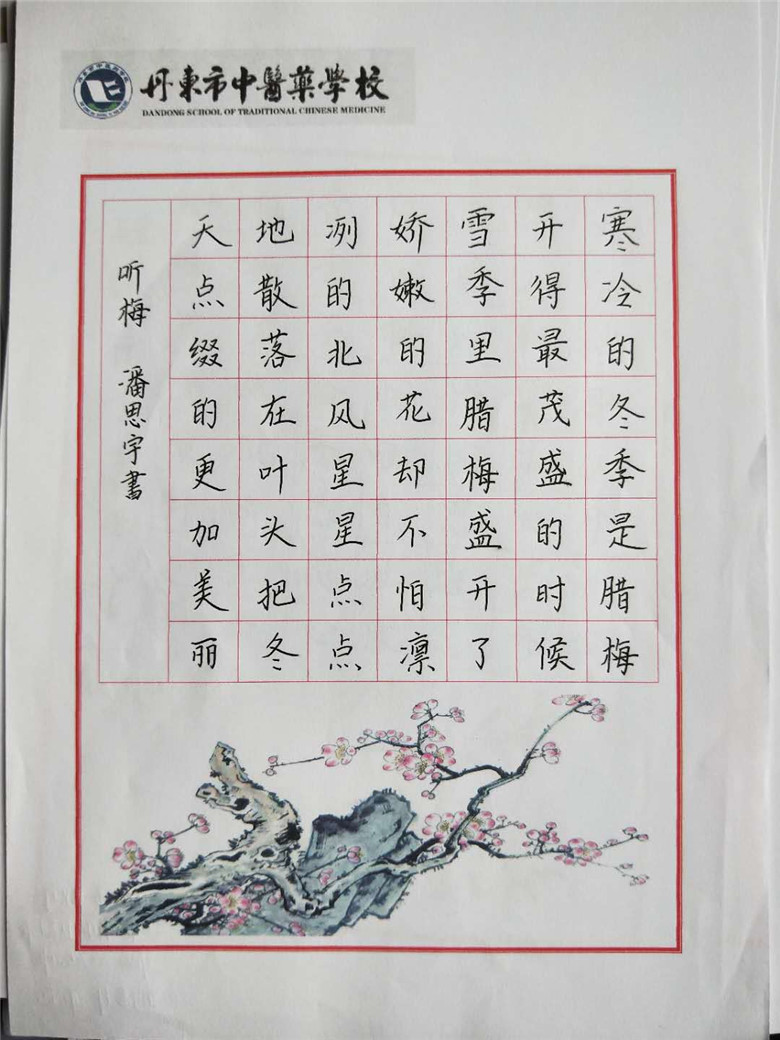 丹東市中醫藥學校
DANDONG SCHOOL OF TRADITIONAL CHINESE MEDICINE
寒冷的冬季是腊梅
开得最茂盛的时候
雪季里腊梅盛开了
娇嫩的花却不怕凛
冽的北风星星点点
地散落在叶头把冬
天点缀的更加美丽
听梅 潘思宇書